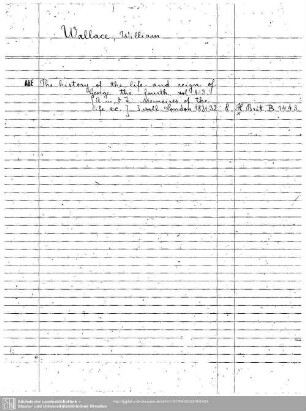 Wallace, William
The history of the life and reign of
George the fourth vol 1-3.
Memoires of the
life &c.] 3 voll. London 1831-32. 8. H. Brit. B. 1443
Sächsische Landesbibliothek -
Staats- und Universitätsbibliothek Dresden